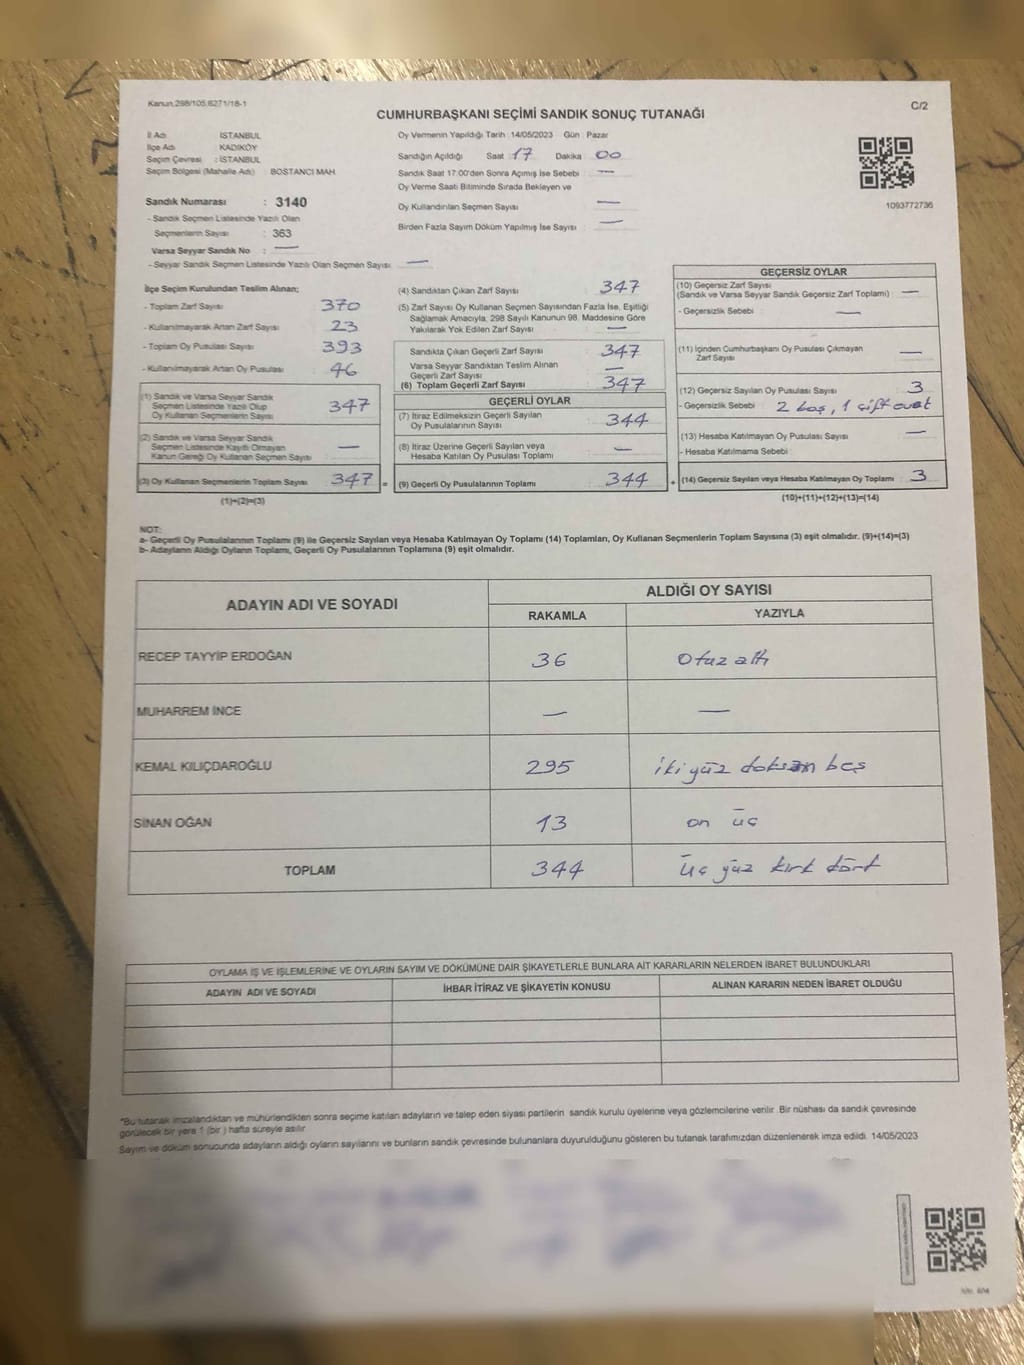 Kanun.298/105;6271/18-1
C/2
CUMHURBAŞKANI SEÇİMİ SANDIK SONUÇ TUTANAĞI
İl Adı : İSTANBUL
İlçe Adı : KADIKÖY
Seçim Çevresi : İSTANBUL
Seçim Bölgesi (Mahalle Adı) : BOSTANCI MAH.
Sandık Numarası : 3140
- Sandık Seçmen Listesinde Yazılı Olan
Seçmenlerin Sayısı : 363
Varsa Seyyar Sandık No : —
- Seyyar Sandık Seçmen Listesinde Yazılı Olan Seçmen Sayısı : —
Oy Vermenin Yapıldığı Tarih : 14/05/2023 Gün : Pazar
Sandığın Açıldığı Saat 17 Dakika 00
Sandık Saat 17:00'den Sonra Açımış İse Sebebi : —
Oy Verme Saati Bitiminde Sırada Bekleyen ve
Oy Kullandırılan Seçmen Sayısı : —
Birden Fazla Sayım Döküm Yapılmış İse Sayısı : —
1093772736
İlçe Seçim Kurulundan Teslim Alınan;
- Toplam Zarf Sayısı : 370
- Kullanılmayarak Artan Zarf Sayısı : 23
- Toplam Oy Pusulası Sayısı : 393
- Kullanılmayarak Artan Oy Pusulası : 46
(1) Sandık ve Varsa Seyyar Sandık
Seçmen Listesinde Yazılı Olup
Oy Kullanan Seçmenlerin Sayısı : 347
(2) Sandık ve Varsa Seyyar Sandık
Seçmen Listesinde Kayıtlı Olmayan
Kanun Gereği Oy Kullanan Seçmen Sayısı : —
(3) Oy Kullanan Seçmenlerin Toplam Sayısı : 347 =
(1)+(2)=(3)
(4) Sandıktan Çıkan Zarf Sayısı : 347
(5) Zarf Sayısı Oy Kullanan Seçmen Sayısından Fazla İse, Eşitliği
Sağlamak Amacıyla, 298 Sayılı Kanunun 98. Maddesine Göre
Yakılarak Yok Edilen Zarf Sayısı : —
Sandıkta Çıkan Geçerli Zarf Sayısı : 347
Varsa Seyyar Sandıktan Teslim Alınan
Geçerli Zarf Sayısı : —
(6) Toplam Geçerli Zarf Sayısı : 347
GEÇERLİ OYLAR
(7) İtiraz Edilmeksizin Geçerli Sayılan
Oy Pusulalarının Sayısı : 344
(8) İtiraz Üzerine Geçerli Sayılan veya
Hesaba Katılan Oy Pusulası Toplamı : —
(9) Geçerli Oy Pusulalarının Toplamı : 344 +
GEÇERSİZ OYLAR
(10) Geçersiz Zarf Sayısı
(Sandık ve Varsa Seyyar Sandık Geçersiz Zarf Toplamı) : —
- Geçersizlik Sebebi : —
(11) İçinden Cumhurbaşkanı Oy Pusulası Çıkmayan
Zarf Sayısı : —
(12) Geçersiz Sayılan Oy Pusulası Sayısı : 3
- Geçersizlik Sebebi : 2 boş, 1 çift evet
(13) Hesaba Katılmayan Oy Pusulası Sayısı : —
- Hesaba Katılmama Sebebi :
(14) Geçersiz Sayılan veya Hesaba Katılmayan Oy Toplamı : 3
(10)+(11)+(12)+(13)=(14)
NOT:
a- Geçerli Oy Pusulalarının Toplamı (9) ile Geçersiz Sayılan veya Hesaba Katılmayan Oy Toplamı (14) Toplamları, Oy Kullanan Seçmenlerin Toplam Sayısına (3) eşit olmalıdır. (9)+(14)=(3)
b- Adayların Aldığı Oyların Toplamı, Geçerli Oy Pusulalarının Toplamına (9) eşit olmalıdır.
ADAYIN ADI VE SOYADI ALDIĞI OY SAYISI
RAKAMLA YAZIYLA
RECEP TAYYİP ERDOĞAN 36 Otuz altı
MUHARREM İNCE — —
KEMAL KILIÇDAROĞLU 295 iki yüz doksan beş
SİNAN OĞAN 13 on üç
TOPLAM 344 üç yüz kırk dört
OYLAMA İŞ VE İŞLEMLERİNE VE OYLARIN SAYIM VE DÖKÜMÜNE DAİR ŞİKAYETLERLE BUNLARA AİT KARARLARIN NELERDEN İBARET BULUNDUKLARI
ADAYIN ADI VE SOYADI İHBAR İTİRAZ VE ŞİKAYETİN KONUSU ALINAN KARARIN NEDEN İBARET OLDUĞU
*Bu tutanak imzalandıktan ve mühürlendikten sonra seçime katılan adayların ve talep eden siyasi partilerin sandık kurulu üyelerine veya gözlemcilerine verilir. Bir nüshası da sandık çevresinde
görülecek bir yere 1 (bir ) hafta süreyle asılır.
Sayım ve döküm sonucunda adayların aldığı oyların sayılarını ve bunların sandık çevresinde bulunanlara duyurulduğunu gösteren bu tutanak tarafımızdan düzenlenerek imza edildi. 14/05/2023